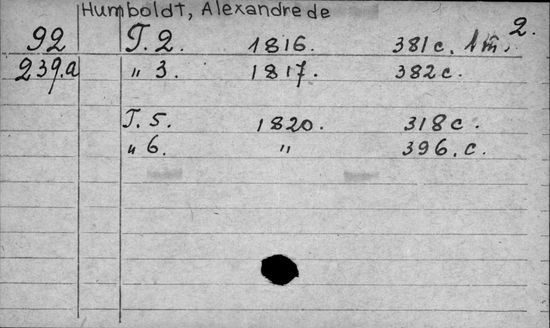 Humboldt, Alexandre de
2.
92 T. 2. 1816. 381c. 1 m̄.
239.a " 3. 1817. 382c.
T. 5. 1820. 318c.
" 6. " 396. c.